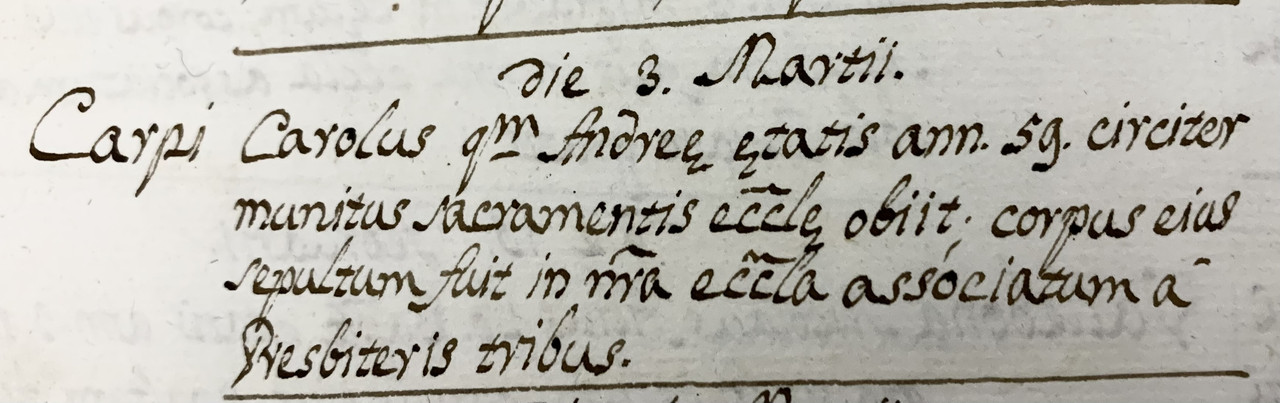 Die 3. Martii.
Carpi Carolus qm̃ Andreę ętatis ann. 59. circiter
munitus sacramentis ecc̃lę obiit; corpus eius
sepultum fuit in nr̃a ecc̃la associatum a
Presbiteris tribus.